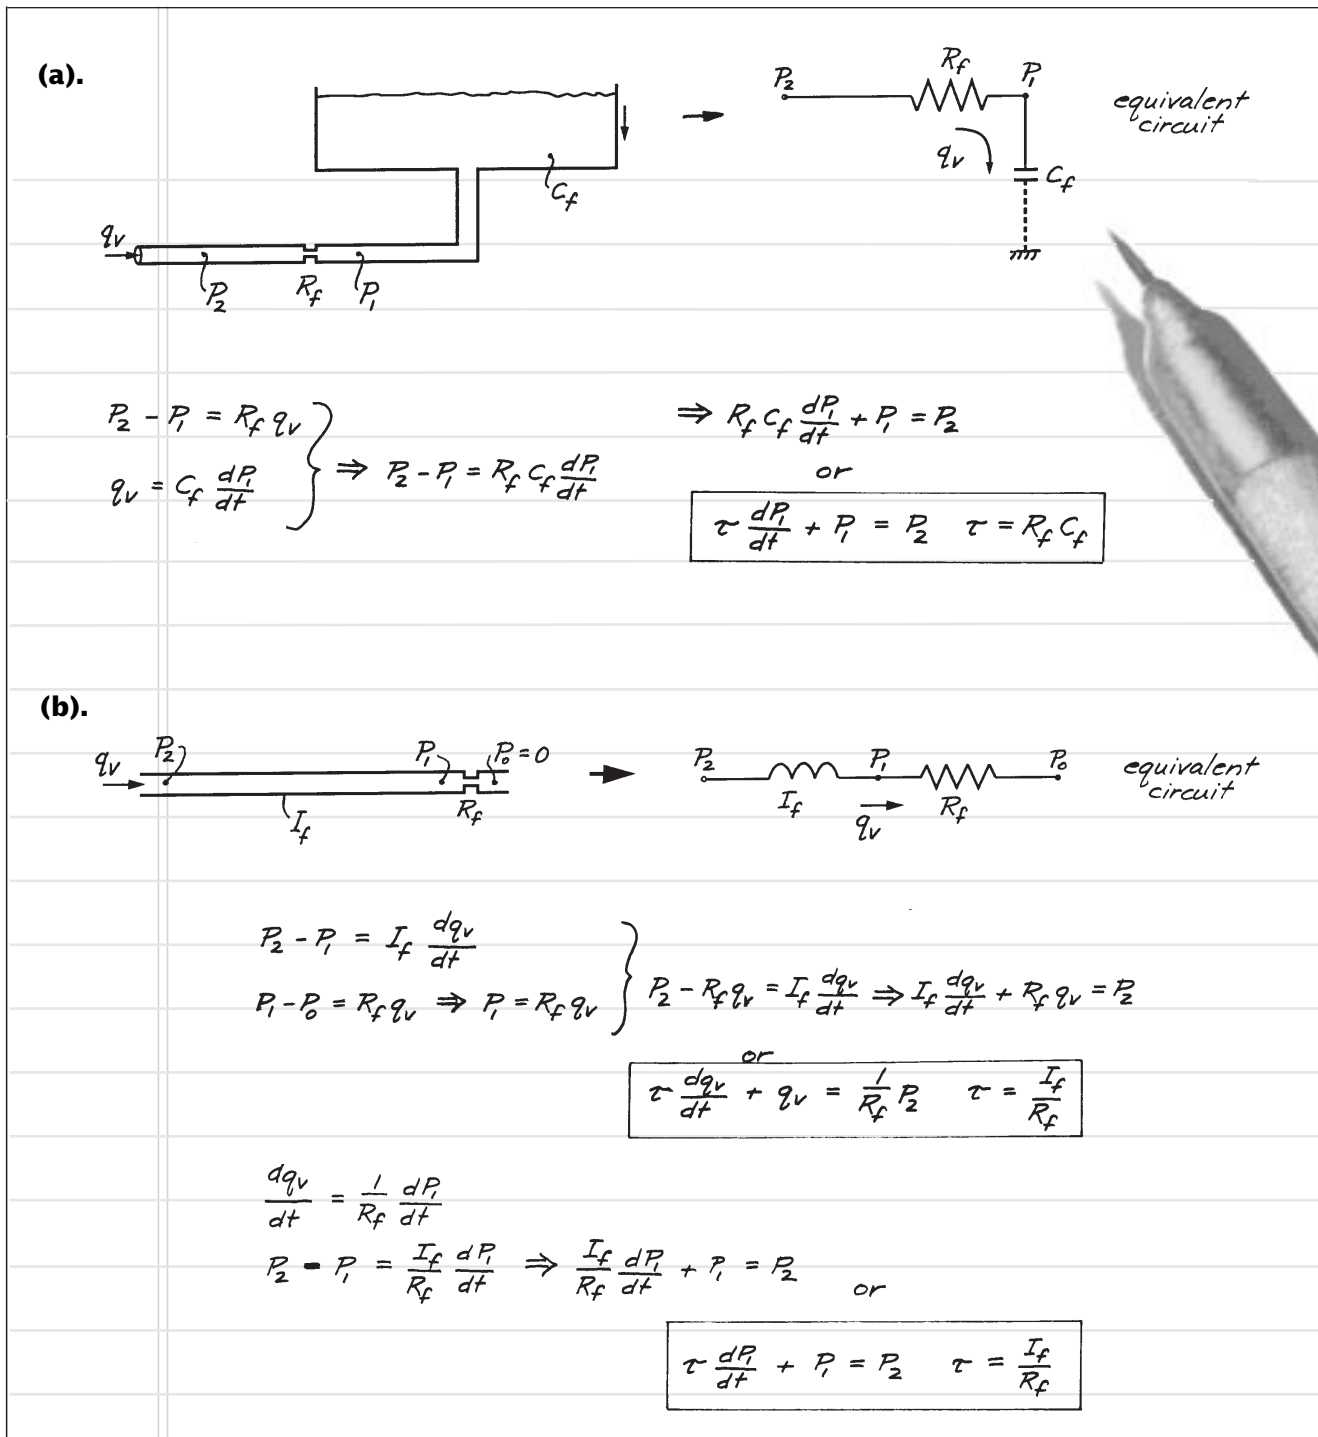 (a).
P₂ R_f P₁
equivalent
circuit
q_v C_f
C_f
q_v
P₂ R_f P₁
P₂ - P₁ = R_f q_v
q_v = C_f dP₁/dt
⇒ P₂ - P₁ = R_f C_f dP₁/dt
⇒ R_f C_f dP₁/dt + P₁ = P₂
or
τ dP₁/dt + P₁ = P₂ τ = R_f C_f
(b).
q_v P₂ P₁ P₀ = 0
I_f R_f
P₂ P₁ P₀
I_f q_v R_f
equivalent
circuit
P₂ - P₁ = I_f dq_v/dt
P₁ - P₀ = R_f q_v ⇒ P₁ = R_f q_v
P₂ - R_f q_v = I_f dq_v/dt ⇒ I_f dq_v/dt + R_f q_v = P₂
or
τ dq_v/dt + q_v = 1/R_f P₂ τ = I_f/R_f
dq_v/dt = 1/R_f dP₁/dt
P₂ - P₁ = I_f/R_f dP₁/dt ⇒ I_f/R_f dP₁/dt + P₁ = P₂
or
τ dP₁/dt + P₁ = P₂ τ = I_f/R_f